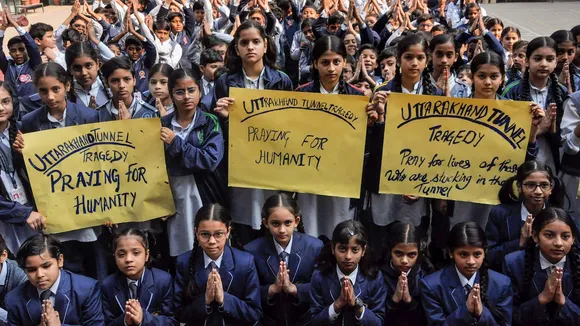 UTTARAKHAND TUNNEL
TRAGEDY
PRAYING FOR
HUMANITY
UTTARAKHAND TUNNEL
TRAGEDY
PRAYING FOR
HUMANITY
UTTARAKHAND TUNNEL
TRAGEDY
PRAY FOR LIVES OF those
Who are stucking in the
Tunnel